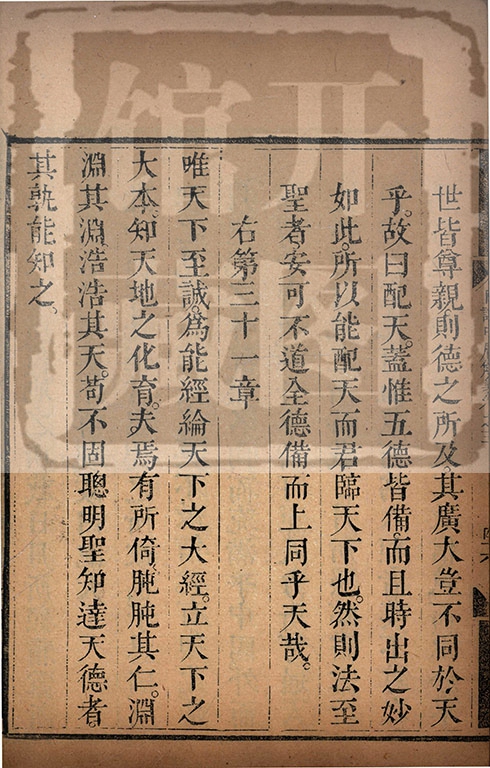 世皆尊親則德之所及其廣大豈不同於天
乎故曰配天蓋惟五德皆備而且時出之妙
如此所以能配天而君臨天下也然則法至
聖者安可不道全德備而上同乎天哉
右第三十一章
唯天下至誠為能經綸天下之大經立天下之
大本知天地之化育夫焉有所倚肫肫其仁淵
淵其淵浩浩其天苟不固聰明聖知達天德者
其孰能知之